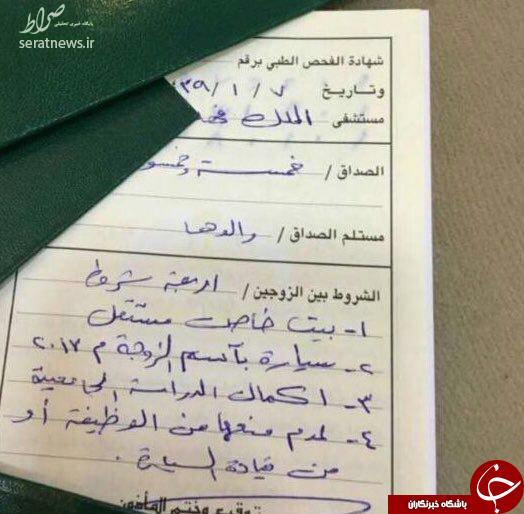 صراط
پایگاه خبری تحلیلی
seratnews.ir
شهادة الفحص الطبي برقم
وتاريخ ٣٩/١/٧
مستشفى الملك
الصداق / خمسة
مستلم الصداق / والدها
الشروط بين الزوجين / اربعة شروط
١- بيت خاص مستقل
٢- سيارة بأسم الزوجة م ٢٠١٣
٣- اكمال الدراسة الجامعية
٤- لعدم منعها من الوظيفة أو
من قيادة السيارة .
توقيع وختم المأذون
باشگاه خبرنگاران